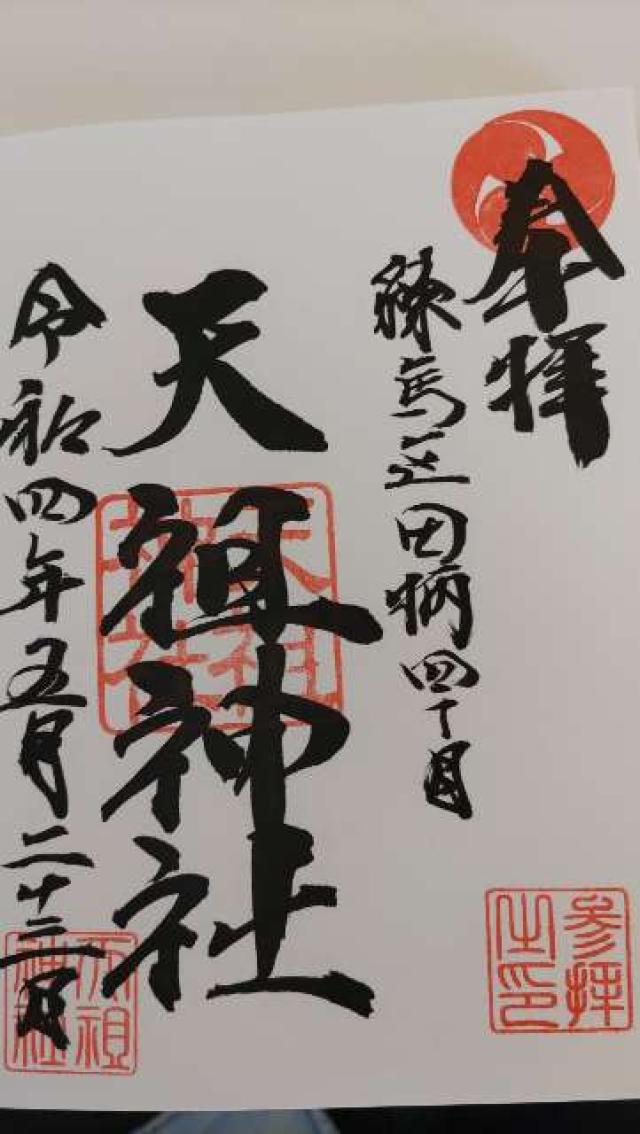 奉拝
練馬区田柄四丁目
参拝之印
天祖神社
天祖神社
令和四年五月二十三日
天祖神社